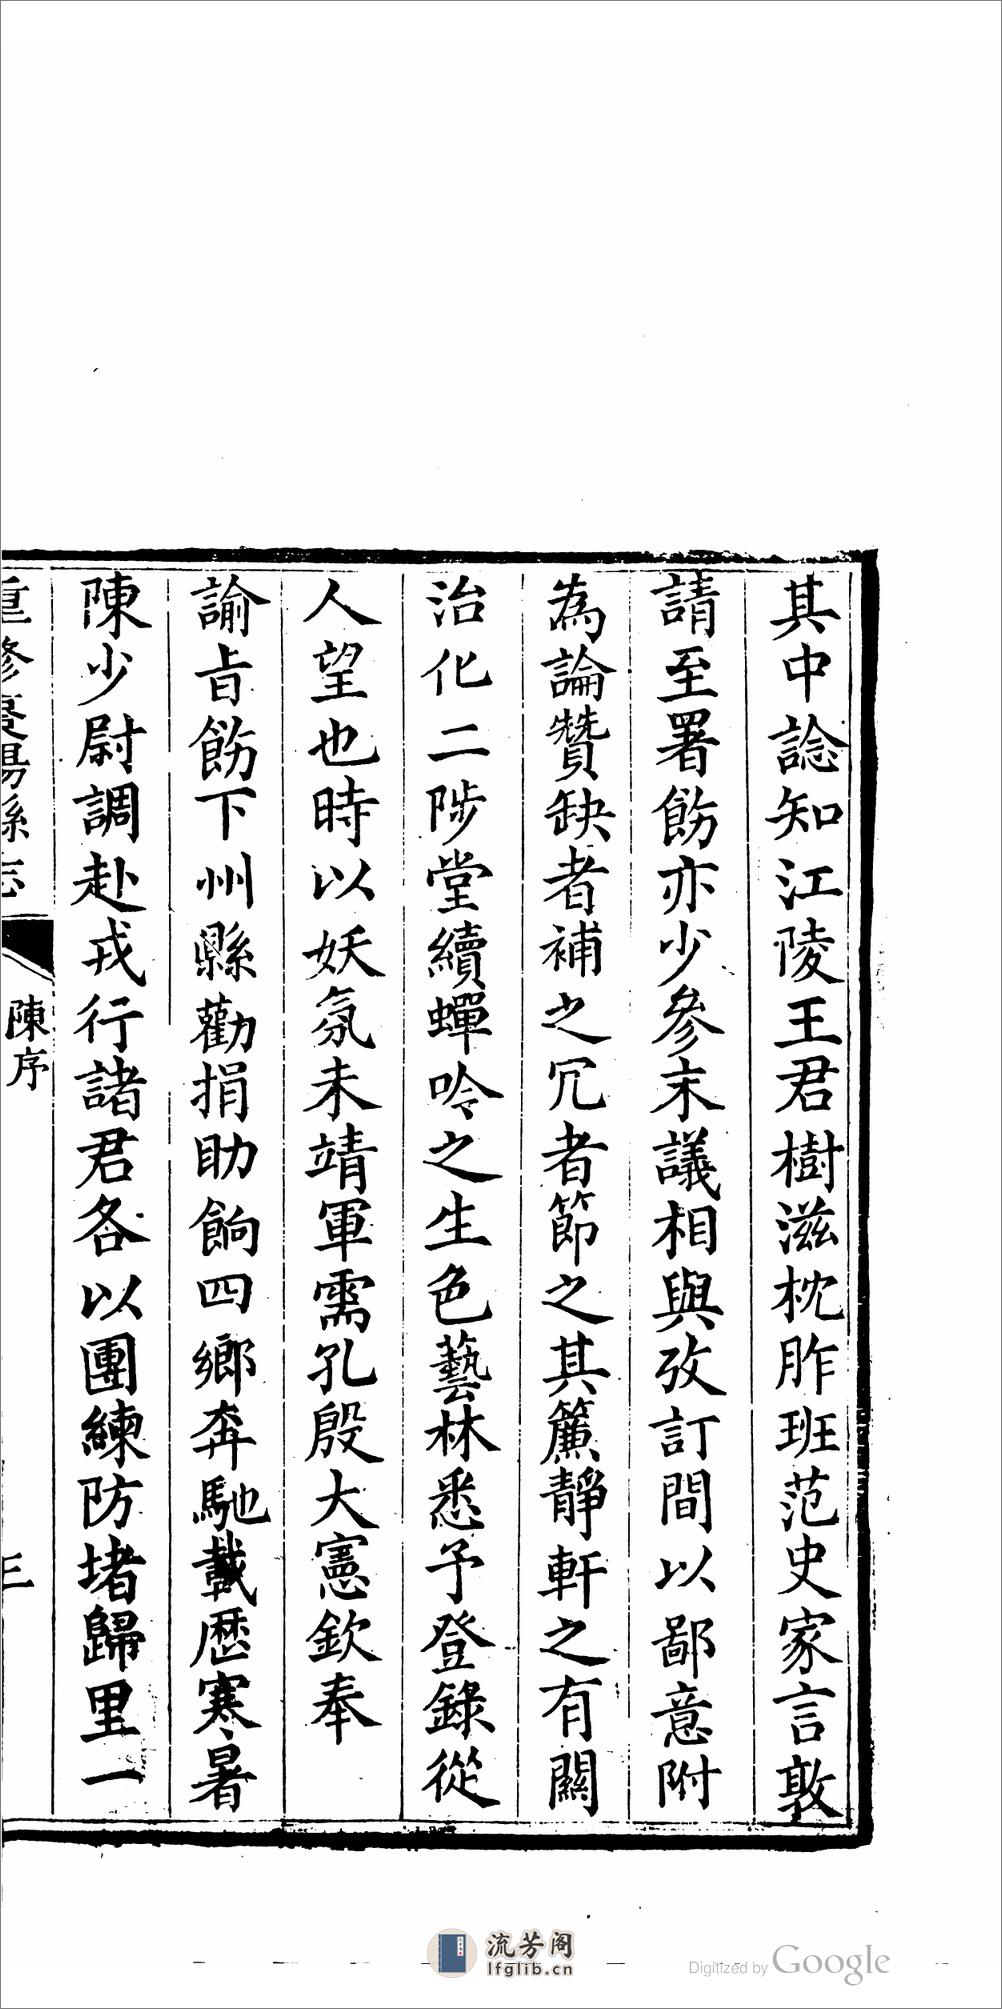 其中諗知江陵王君樹滋枕胙班范史家言敦
請至署飭亦少參末議相與攷訂間以鄙意附
為論贊缺者補之冗者節之其簾靜軒之有關
治化二陟堂續蟬吟之生色藝林悉予登錄從
人望也時以妖氛未靖軍需孔殷大憲欽奉
諭旨飭下州縣勸捐助餉四鄉奔馳載歷寒暑
陳少尉調赴戎行諸君各以團練防堵歸里一
重修棗陽縣志
陳序
三
流芳阁
lfglib.cn
Digitized by Google